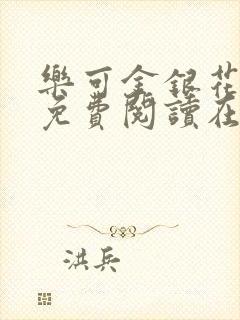 樂可金銀花
免費閱讀在
洪兵